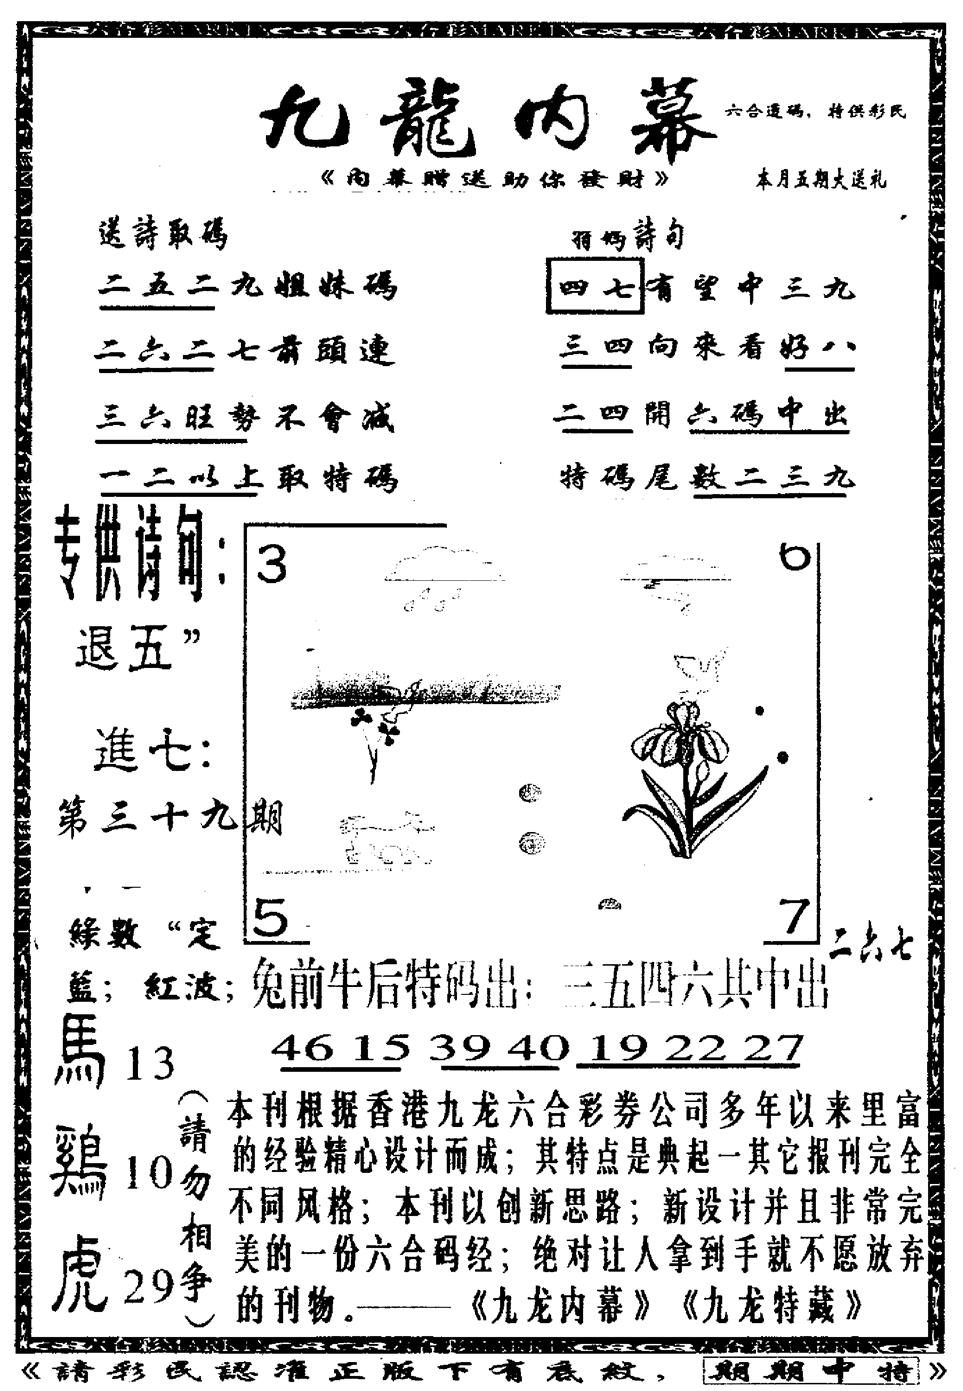 九龍内幕
六合透碼，特供彩民
《内幕贈送助你發財》
本月五期大送礼
送詩取碼
二五二九姐妹碼
二六二七前頭連
三六旺勢不會减
一二以上取特碼
詩句
四七有望中三九
三四向來看好八
二四開六碼中出
特碼尾數二三九
专供诗句：
退五”
進七：
第三十九期
3
6
5
7
二六七
綠數“定
藍；紅波；
兔前牛后特码出：三五四六共中出
46 15 39 40 19 22 27
馬 13
鷄 10
虎 29
（請勿相争）
本刊根据香港九龙六合彩券公司多年以来里富
的经验精心设计而成；其特点是典起一其它报刊完全
不同风格；本刊以创新思路；新设计并且非常完
美的一份六合码经；绝对让人拿到手就不愿放弃
的刊物。——《九龙内幕》《九龙特藏》
《請彩民認准正版下有底紋，期期中特》